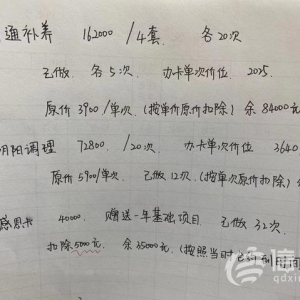 通补养 162000 /4套 各20次
已做 各5次. 办卡单次价位 2025
原价 3900/单次. (按单价原价扣除) 余84000元
阴阳调理 72800 /20次 办卡单次价位 3640
原价5900/单次 已做12次(按单次原价扣除)
感恩卡 40000. 赠送一年基础项目 已做32次
扣除5000元 余35000元 (按照当时
信
qdxin